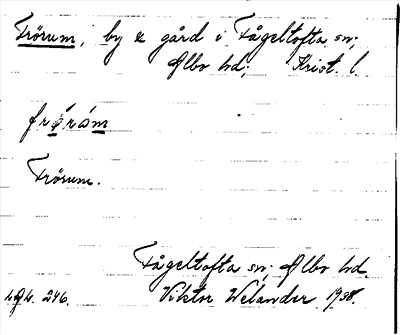 Frörum, by & gård i Fågeltofta sn;
Albo hd; Krist. l.
Frörum.
Fågeltofta sn; Albo hd.
246. Viktor Welander 1938.